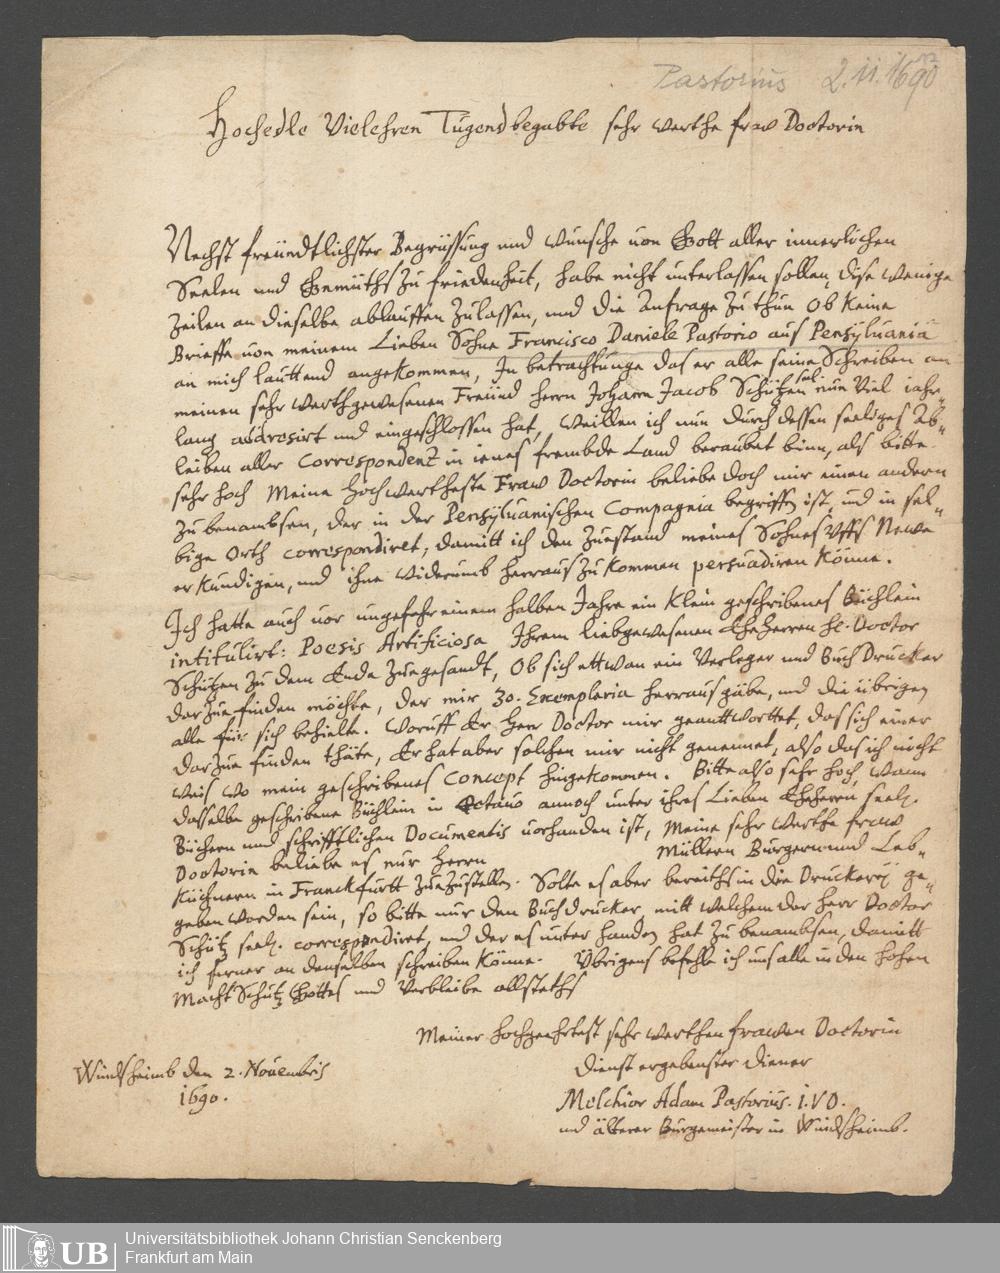 Pastorius 2.11.1690
Hochedle Vielehren Tugendbegabte sehr werthe fraw Doctorin
Nechst freündtlichster Begrüssung und wunsche von Gott aller innerlichen
Seelen und Gemüths Zu friedenheit, habe nicht unterlassen sollen, dise wenige
Zeilen an dieselbe ablauffen Zulassen, und die anfrage Zu thun Ob keine
Brieffe von meinem Lieben Sohne Francisco Daniele Pastorio aus Pensylvaniâ
an mich lauttend angekommen, In betrachtunge das er alle seine Schreiben an
meinen sehr werthgewesenen Freünd Herrn Johann Jacob Schützen seel. nun Viel iahr
lang adresirt und eingeschlossen hat, Weillen ich nun durch dessen seeliges Ab-
leiben aller Correspondentz in ienes frembde Land beraubet binn, als bitte
sehr hoch Meine Hochwertheste Fraw Doctorin beliebe doch mir einen andern
Zu benambsen, der in der Pensylvanischen Compagnia begriffen ist, und in sel-
bige Orth correspondiret, damitt ich den Zuestand meines Sohnes Uffs Newe
erkundigen, und ihne Widerumb herraus Zu kommen persuadiren könne.
Ich hatte auch vor ungefehr einem halben Jahre ein klein geschribenes Büchlein
intitulirt: Poesis Artificiosa Ihrem liebgewesenen Eheherren H. Doctor
Schützen Zu dem Ende Zuegesandt, Ob sich ettwan ein Verleger und Buch Drucker
darzue finden möchte, der mir 30. Exemplaria herraus gäbe, und die übrigen
alle für sich behielte. Woruff Er Herr Doctor mir geanttworttet, das sich einer
darzue finden thäte, Er hat aber solchen mir nicht genennet, also das ich nicht
weis wo mein geschribenes Concept hingekommen. Bitte also sehr hoch, wann
dasselbe geschribene Büchlein in Octavo annoch unter ihres Lieben Eheherrn seel.
Büchern und schrifftlichen Documentis vorhanden ist, Meine sehr werthe fraw
Doctorin beliebe es nur Herrn Müllern Burgern und Leb-
Küchnern in Franckfurtt Zue Zustellen. Solte es aber bereiths in die Druckereÿ ge-
geben worden sein, so bitte nur den Buchdrucker, mitt welchem der Herr Doctor
Schütz seel. correspondiret, und der es unter handen hat Zu benambsen, damitt
ich ferner an denselben schreiben könne. Übrigens befehle ich uns alle in den hohen
Macht Schutz Gottes und Verbleibe allstaths
Meiner Hochgeehrtest sehr werthen frawen Doctorin
dienst ergebenster diener
Windsheimb den 2. Novembris
1690.
Melchior Adam Pastorius. I.V.D.
und älterer Burgemeister in Windsheimb.
UB
Universitätsbibliothek Johann Christian Senckenberg
Frankfurt am Main